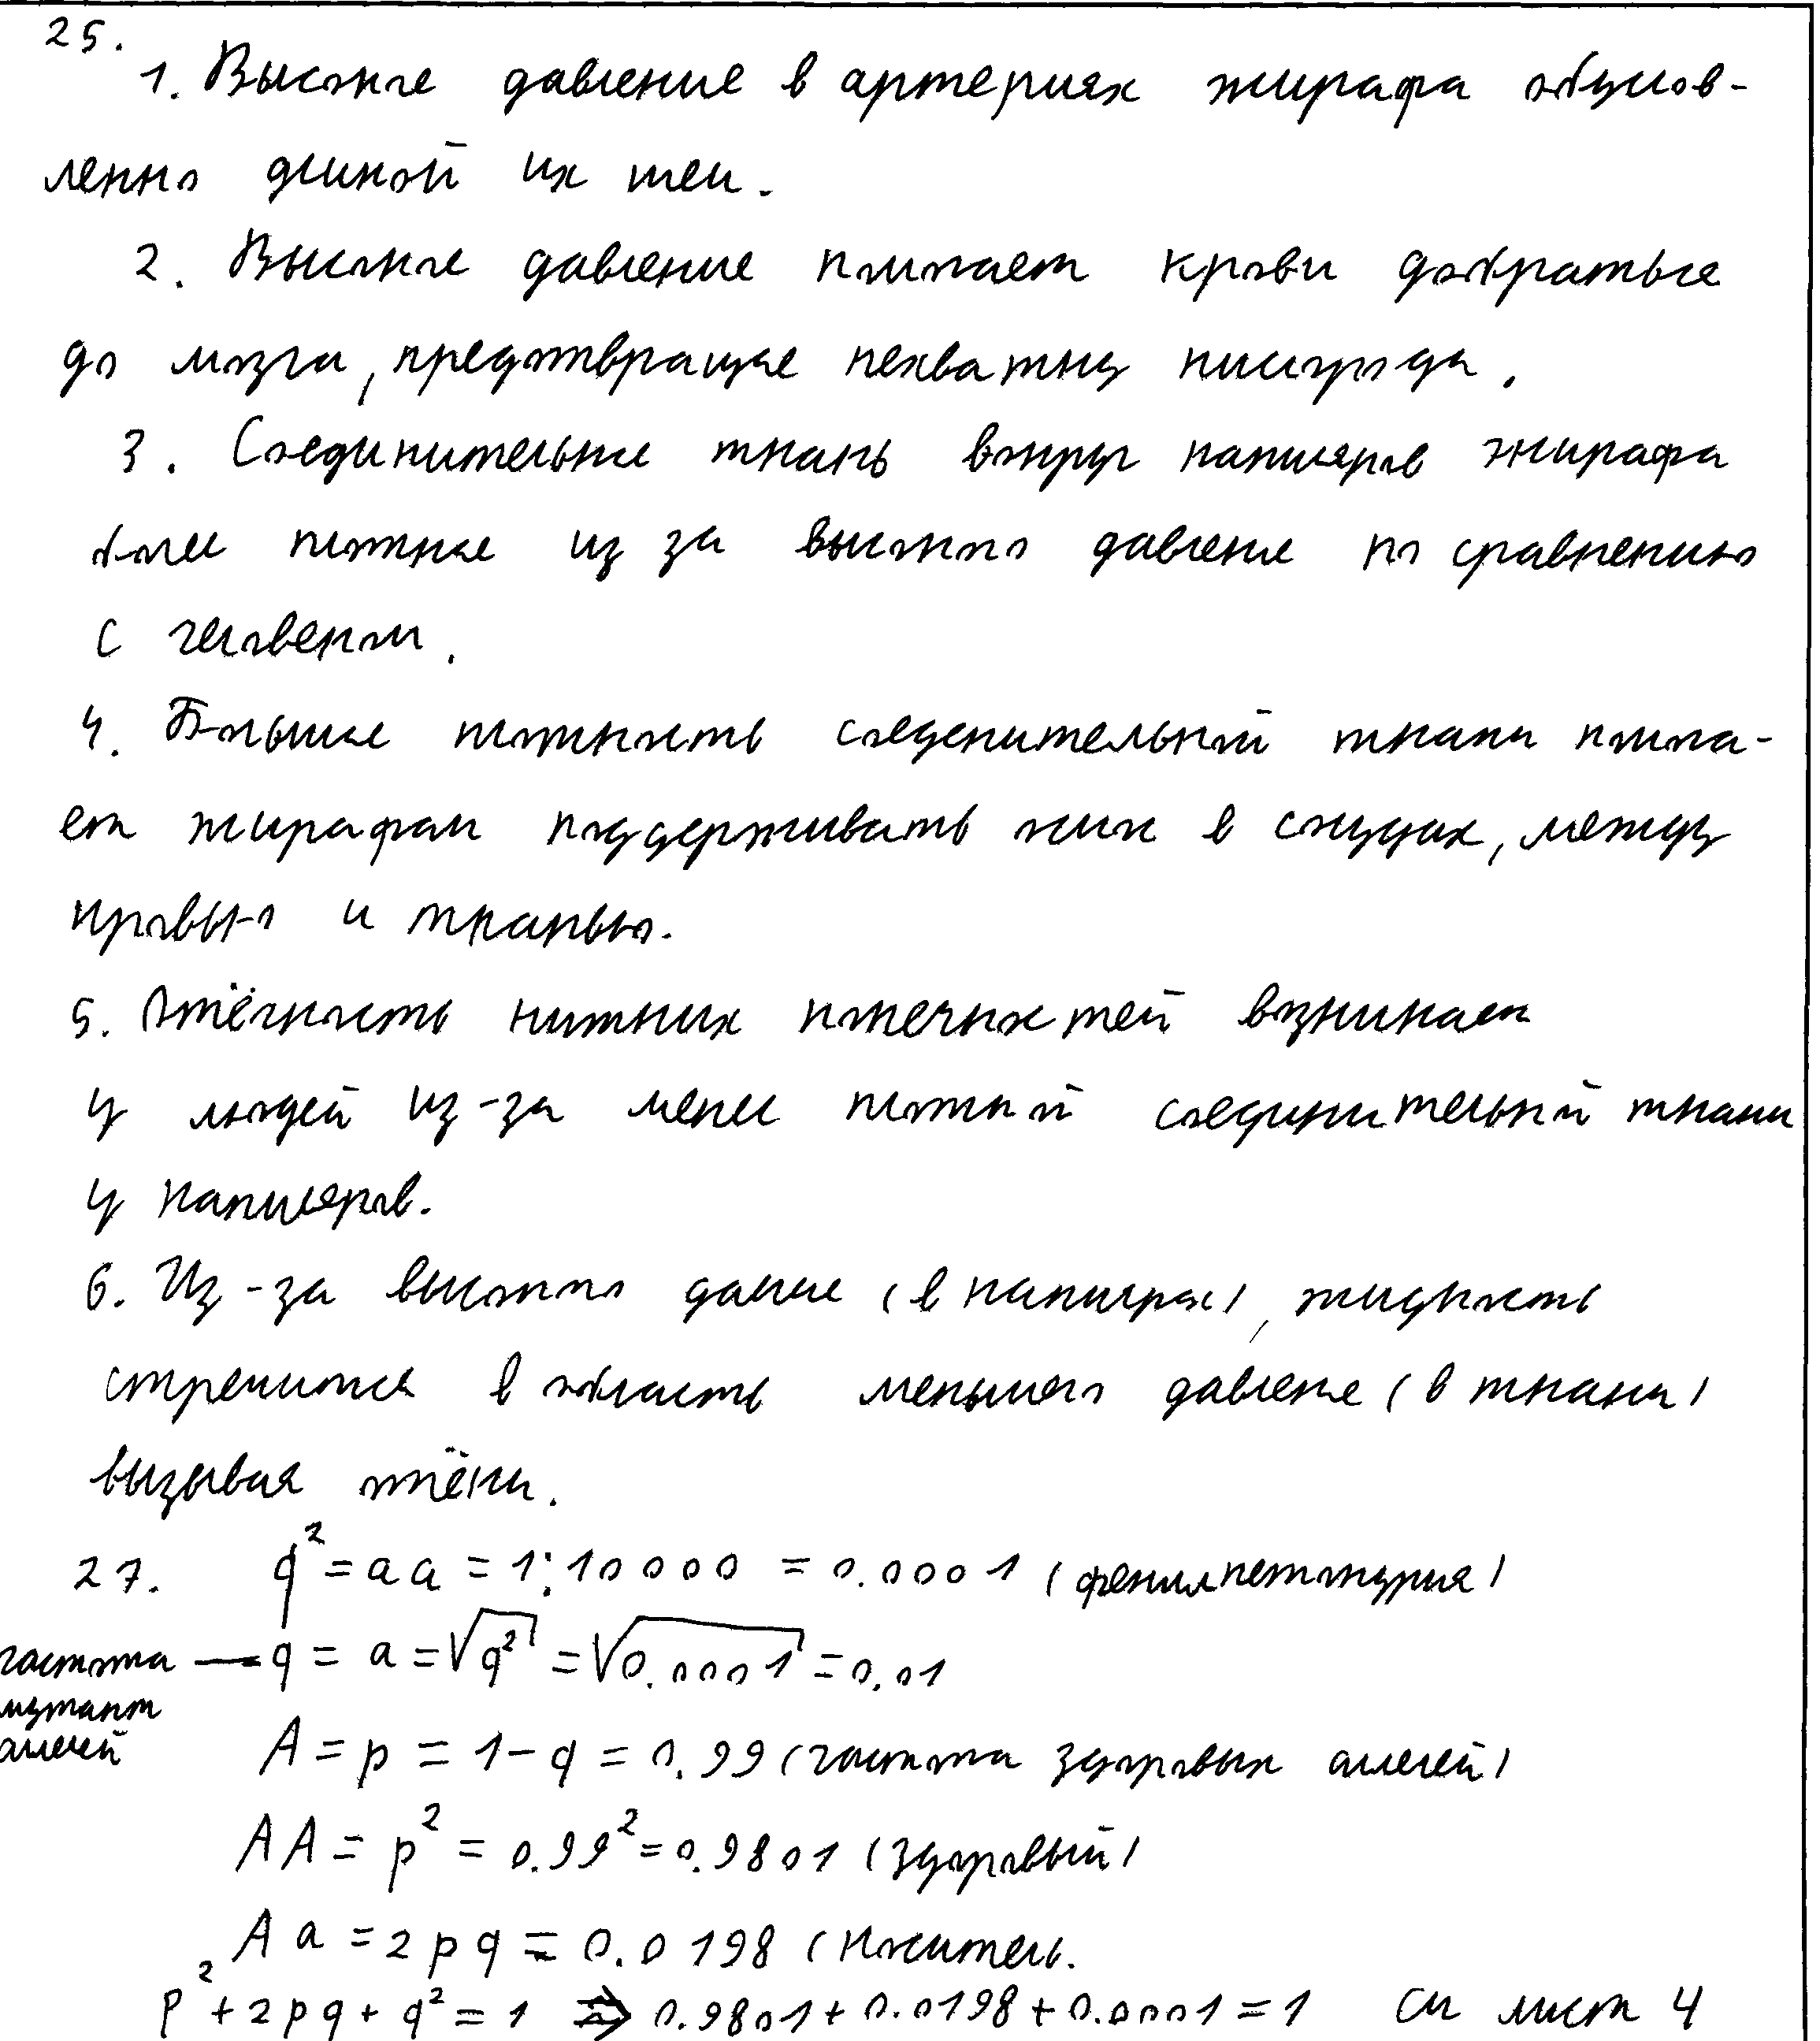 25.
1. Высокое давление в артериях жирафа обуслов-
ленно длиной их шеи.
2. Высокое давление помогает крови добраться
до мозга, предотвращая нехватку кислорода.
3. Соединительные ткань вокруг капиляров жирафа
более плотные из за высокого давление по сравнению
с человеком.
4. Большая плотность соеденительной ткани помога-
ет жирафам поддерживать в сосудах, между
кровью и тканью.
5. Отёчность нижних конечностей возникает
у людей из-за менее плотной соединительной ткани
у капиляров.
6. Из-за высокого давние (в капилярах), жидкость
стремится в область меньшего давление (в ткани)
вызывая отёки.
27. q² = aa = 1:10000 = 0.0001 (фенилкетонурия)
частота — q = a = √q² = √0.0001 = 0.01
мутант
аллелей A = p = 1 - q = 0.99 (частота здоровых аллелей)
AA = p² = 0.99² = 0.9801 (здоровый)
Aa = 2pq = 0.0198 (Носитель.
p² + 2pq + q² = 1 ⇒ 0.9801 + 0.0198 + 0.0001 = 1 см лист 4